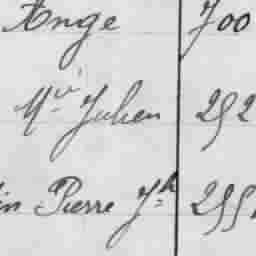 Ange 700
Mie Julien 252
in Pierre Jh 255